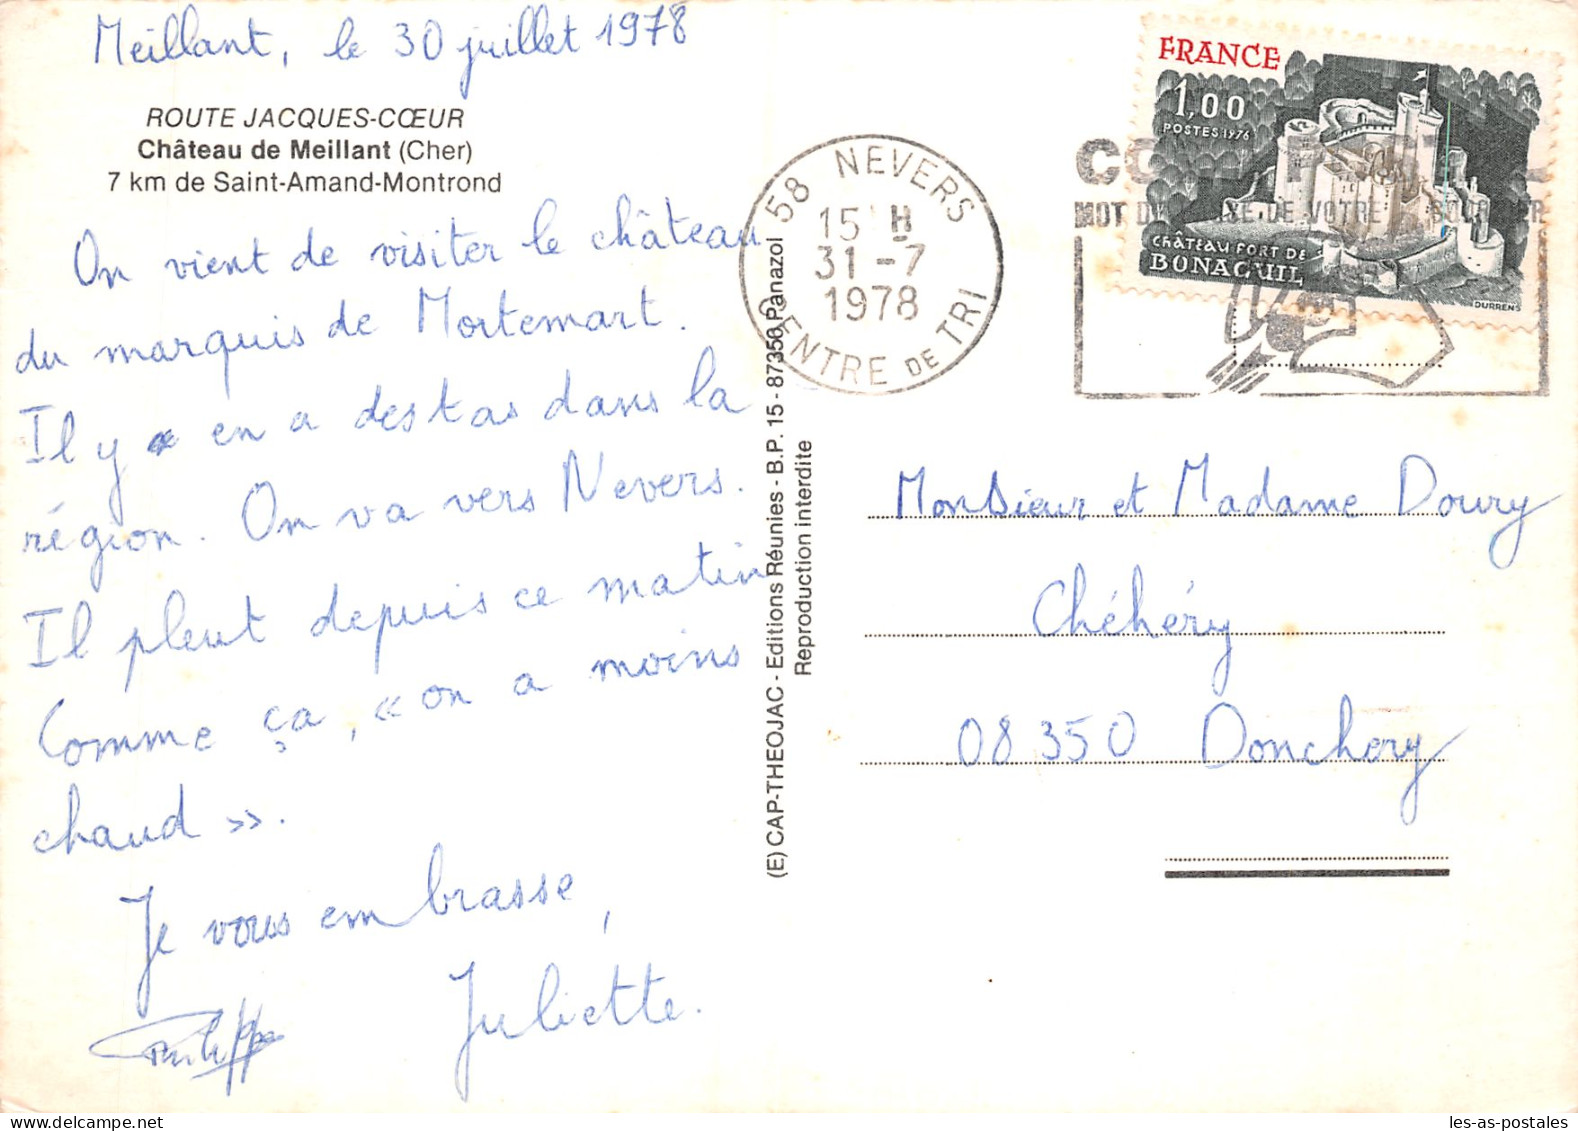 Meillant, le 30 juillet 1978
ROUTE JACQUES-CŒUR
Château de Meillant (Cher)
7 km de Saint-Amand-Montrond
On vient de visiter le château
du marquis de Mortemart.
Il y en a des tas dans la
région. On va vers Nevers.
Il pleut depuis ce matin
Comme ça, « on a moins
chaud ».
Je vous embrasse,
Juliette.
Philippe
(E) CAP-THEOJAC - Editions Réunies - B.P. 15 - 87350 Panazol
Reproduction interdite
58 NEVERS
15 H
31-7
1978
CENTRE DE TRI
FRANCE
1,00
POSTES 1976
CHÂTEAU FORT DE
BONAGUIL
DURRENS
MOT DE VOTRE
Monsieur et Madame Doury
Chéhéry
08350 Donchery
les-as-postales